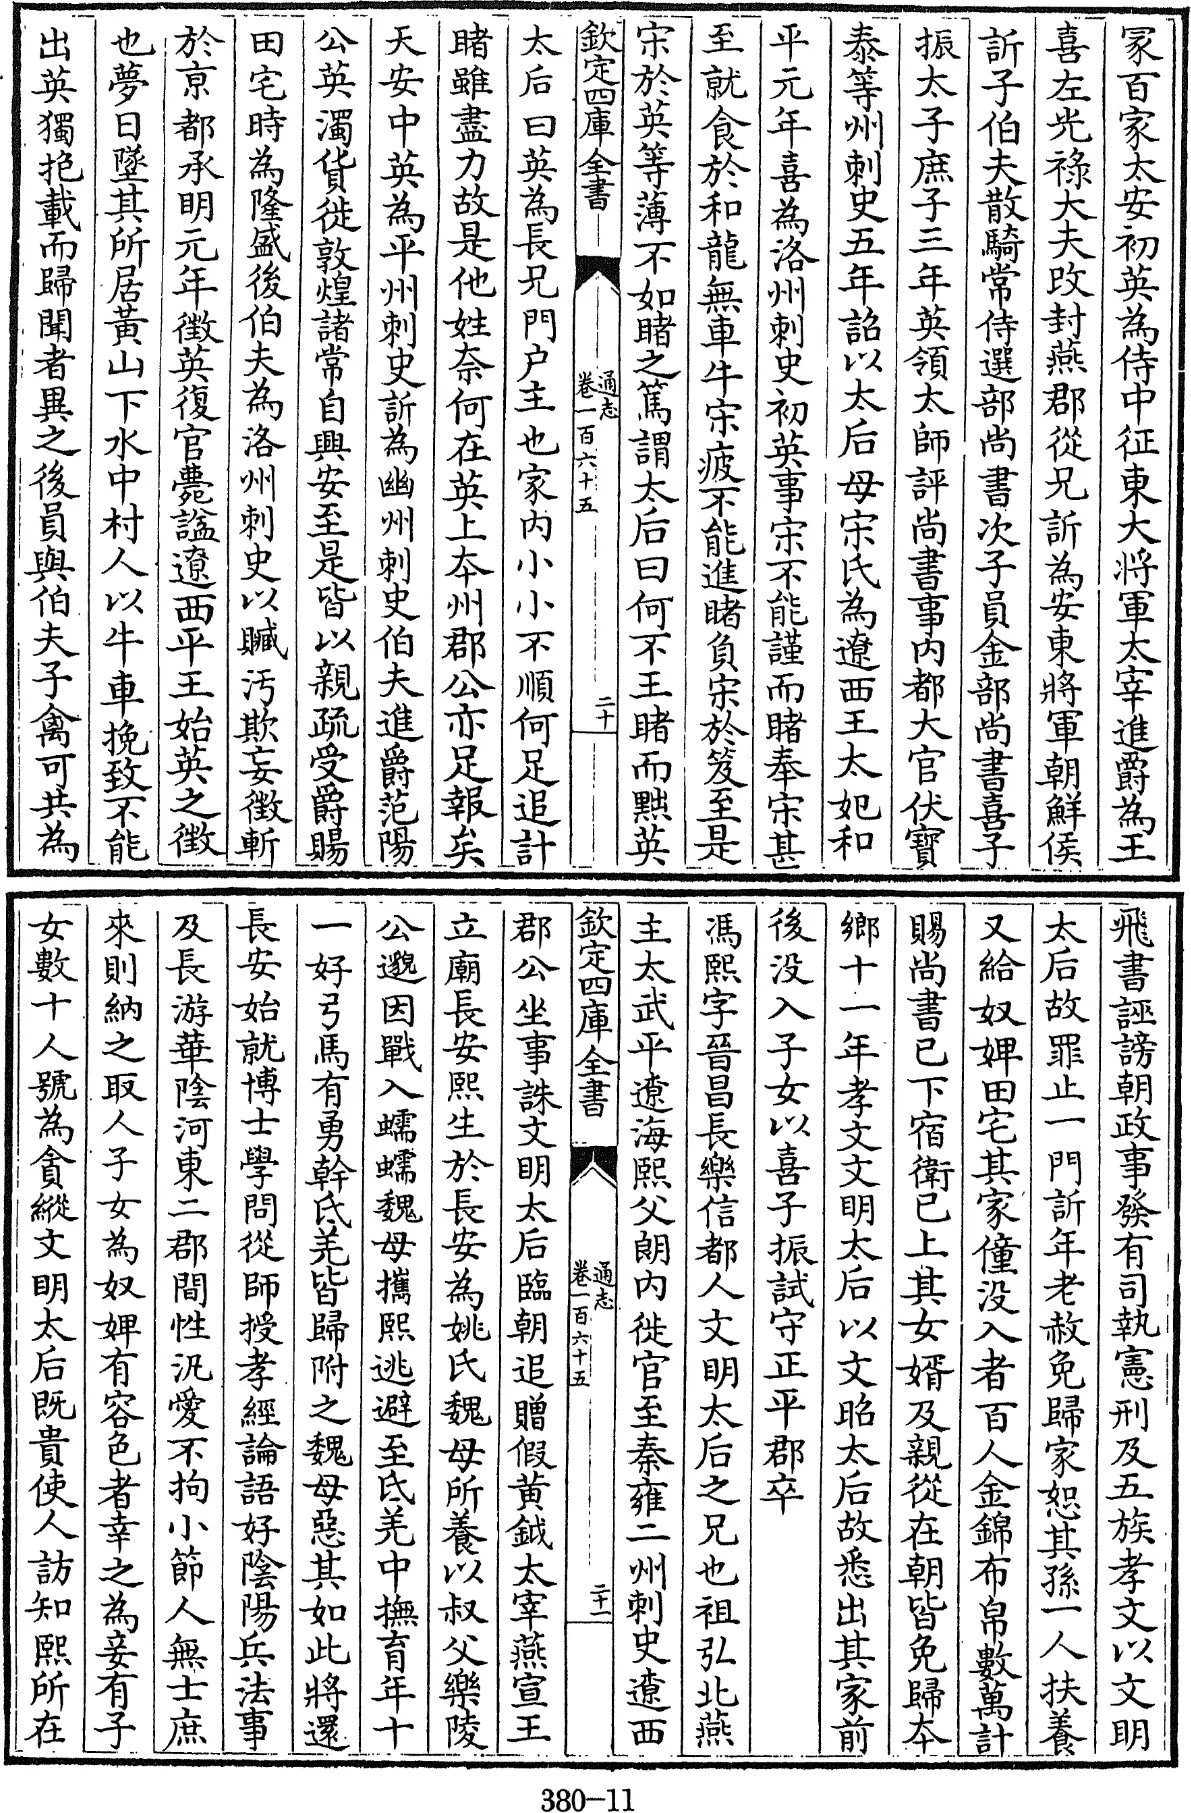 冡百家太安初英為侍中征東大將軍太宰進爵為王
喜左光祿大夫改封燕郡從兄訢為安東將軍朝鮮侯
訢子伯夫散騎常侍選部尚書次子員金部尚書喜子
振太子庶子三年英領太師評尚書事内都大官伏寶
泰等州刺史五年詔以太后母宋氏為遼西王太妃和
平元年喜為洛州刺史初英事宋不能謹而睹奉宋甚
至就食於和龍無車牛宋疲不能進睹負宋於笈至是
宋於英等薄不如睹之篤謂太后曰何不王睹而黜英
欽定四庫全書
通志
卷一百六十五
二十
太后曰英為長兄門户主也家内小小不順何足追計
睹雖盡力故是他姓奈何在英上夲州郡公亦足報矣
天安中英為平州刺史訢為幽州刺史伯夫進爵范陽
公英濁貨徙敦煌諸常自興安至是皆以親疏受爵賜
田宅時為隆盛後伯夫為洛州刺史以贓污欺妄徵斬
於京都承明元年徵英復官薨諡遼西平王始英之徵
也夢日墜其所居黄山下水中村人以牛車挽致不能
出英獨抱載而歸聞者異之後員與伯夫子禽可共為
飛書誣謗朝政事發有司執憲刑及五族孝文以文明
太后故罪止一門訢年老赦免歸家恕其孫一人扶養
又給奴婢田宅其家僮没入者百人金錦布帛數萬計
賜尚書已下宿衛已上其女婿及親從在朝皆免歸夲
鄉十一年孝文文明太后以文昭太后故悉出其家前
後没入子女以喜子振試守正平郡卒
馮熙字晉昌長樂信都人文明太后之兄也祖弘北燕
主太武平遼海熙父朗内徙官至秦雍二州刺史遼西
欽定四庫全書
通志
卷一百六十五
二十一
郡公坐事誅文明太后臨朝追贈假黄鉞太宰燕宣王
立廟長安熙生於長安為姚氏魏母所養以叔父樂陵
公邈因戰入蠕蠕魏母攜熙逃避至氐羌中撫育年十
一好弓馬有勇幹氐羌皆歸附之魏母惡其如此將還
長安始就博士學問從師授孝經論語好陰陽兵法事
及長游華陰河東二郡間性汎愛不拘小節人無士庶
來則納之取人子女為奴婢有容色者幸之為妾有子
女數十人號為貪縱文明太后既貴使人訪知熙所在
380-11